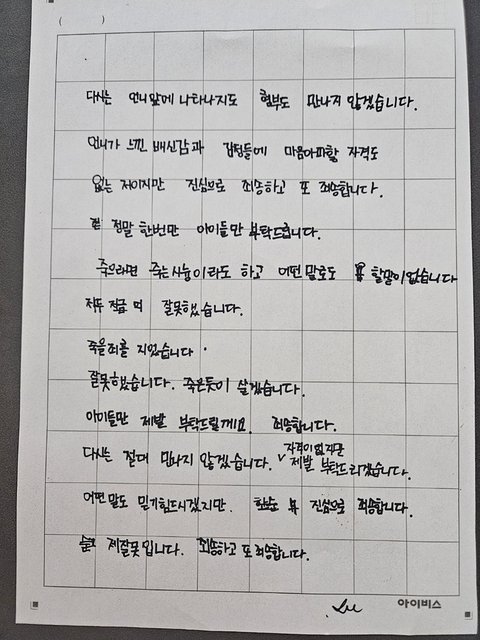 ( )
다시는 언니앞에 나타나지도 형부도 만나지 않겠습니다.
언니가 느낀 배신감과 감정들에 마음아파할 자격도
없는 저이지만 진심으로 죄송하고 또 죄송합니다.
정말 한번만 아이들만 부탁드립니다.
죽으라면 죽는 시늉이라도 하고 어떤말로도 할말이없습니다
잘못했습니다.
죽을죄를 지었습니다.
잘못했습니다. 죽은듯이 살겠습니다.
아이들만 제발 부탁드릴게요. 죄송합니다.
다시는 절대 만나지 않겠습니다. 자격이없지만 제발 부탁드리겠습니다.
어떤말도 믿기힘드시겠지만. 진심으로 죄송합니다.
제잘못입니다. 죄송하고 또 죄송합니다.
아이비스